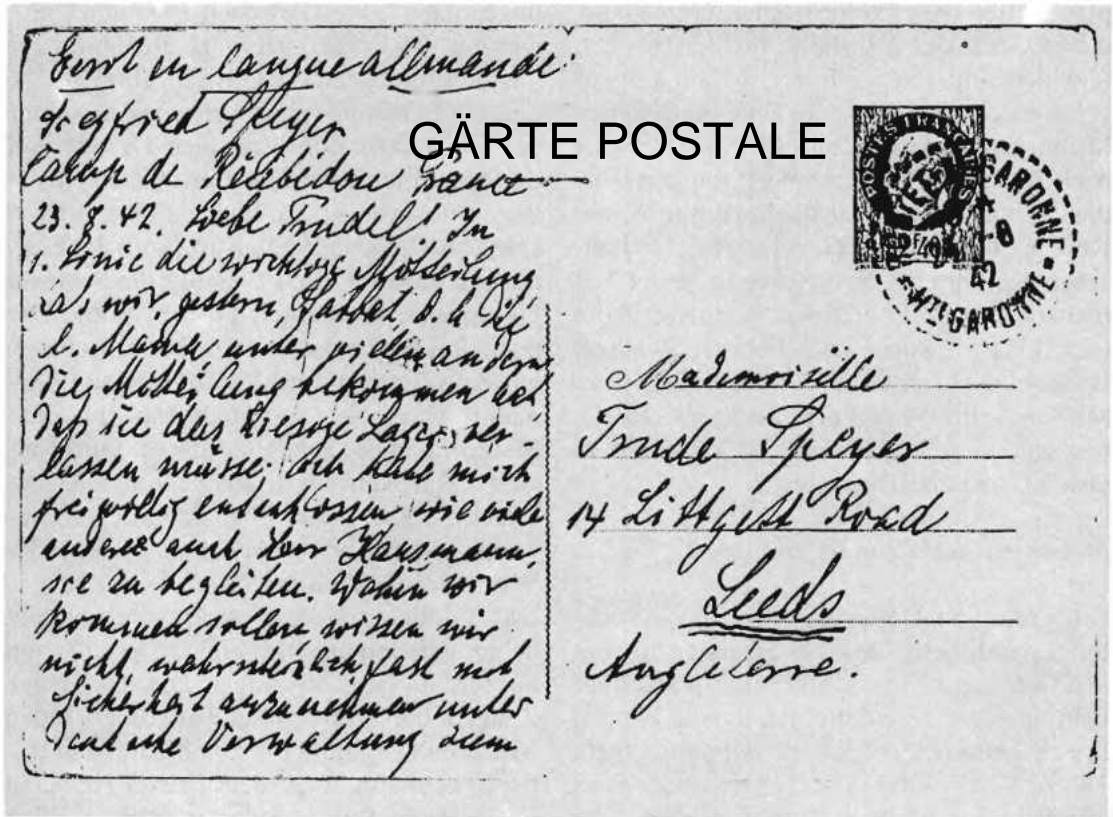 Ecrit en langue allemande:
Siegfried Speyer
Camp de Récébédou France
23. 8. 42. Liebe Trudel! In
1. Linie die wichtige Mitteilung,
das wir, gestern, Sabbat, d. h. die
l. Mama unter vielen andern
die Mitteilung bekommen hat
daß sie das hiesige Lager ver-
lassen müsse. Ich habe mich
freiwillig entschlossen wie viele
andere auch Herr Hausmann,
sie zu begleiten. Wohin wir
kommen sollen wissen wir
nicht, wahrscheinlich, fast mit
Sicherheit anzunehmen unter
deutsche Verwaltung
GÄRTE POSTALE
POSTES FRANÇAISES
GARONNE
8
42
Mademoiselle
Trude Speyer
14 Littgett Road
Leeds
Angleterre.